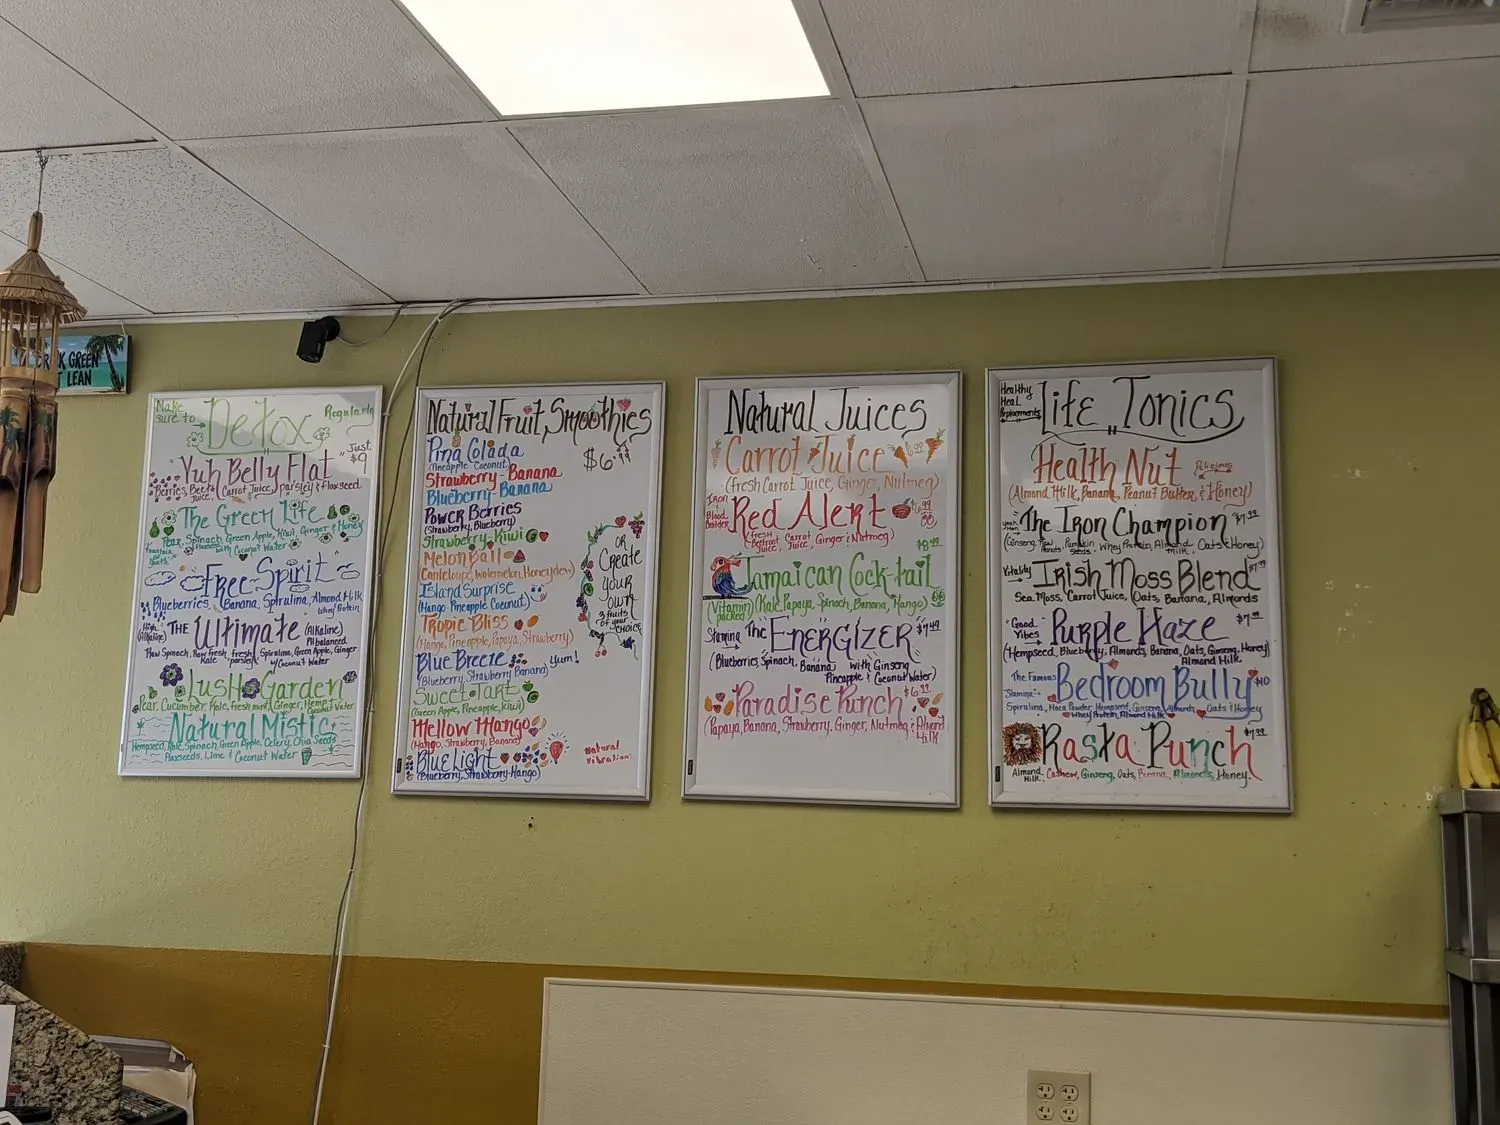 DRINK GREEN
LEAN
Make
sure to
Detox
Regularly
Just
$9
Yuh Belly Flat
Berries, Beets (Carrot Juice) parsley & Flaxseed
Juice
The Green Life
Pear, Spinach, Green Apple, Kiwi, Ginger & Honey
Flaxseed with Coconut Water
Fountain
of
Youth
Free-Spirit
Blueberries, Banana, Spirulina, Almond Milk
Whey Protein
High
(Alkaline)
THE Ultimate (Alkaline)
PH balanced
Raw Spinach, Raw fresh Kale, fresh parsley, Spirulina, Green Apple, Ginger
w/Coconut Water
Lush Garden
Pear, Cucumber, Kale, fresh mint, Ginger, Hemp, Coconut Water
Natural Mistic
Hempseed, Kale, Spinach, Green Apple, Celery, Chia Seeds
Flaxseeds, Lime & Coconut Water
Natural Fruit Smoothies
$6.99
Pina Colada
(Pineapple Coconut)
Strawberry-Banana
Blueberry-Banana
Power Berries
(Strawberry, Blueberry)
Strawberry-Kiwi
Melon Ball
(Canteloupe, Watermelon, Honeydew)
Island Surprise
(Mango Pineapple Coconut)
Tropic Bliss
(Mango, Pineapple, Papaya, Strawberry)
Blue Breeze
(Blueberry, Strawberry Banana) Yum!
Sweet Tart
(Green Apple, Pineapple, Kiwi)
Mellow Mango
(Mango, Strawberry, Banana)
Blue Light
(Blueberry, Strawberry-Mango)
OR
Create
your
own
3 fruits
of your
CHOICE
natural
vibration.
Natural Juices
Carrot Juice
(fresh Carrot Juice, Ginger, Nutmeg)
Iron
&
Blood
Builder
Red Alert
(fresh Beetroot Juice, Carrot Juice, Ginger & Nutmeg)
$8.49
Jamaican Cock-tail
(Vitamin packed) (Kale, Papaya, Spinach, Banana, Mango)
Stamina The "Energizer" $7.49
(Blueberries, Spinach, Banana with Ginseng
Pineapple & Coconut Water)
Paradise Punch $6.99
(Papaya, Banana, Strawberry, Ginger, Nutmeg & Almond
Milk
Healthy
Meal
Replacements
Life Tonics
Health Nut Delicious
(Almond Milk, Banana, Peanut Butter, & Honey)
yeah
man
The Iron Champion $7.99
(Ginseng, Raw Peanuts, Pumpkin Seeds, Whey Protein, Almond Milk, Oats & Honey)
Vitality
Irish Moss Blend $7.99
Sea Moss, Carrot Juice, Oats, Banana, Almonds
"Good
Vibes"
Purple Haze $7.99
(Hempseed, Blueberry, Almonds, Banana, Oats, Ginseng, Honey)
Almond Milk
The Famous
Stamina
Bedroom Bully $10
Spirulina, Maca Powder, Hempseed, Ginseng, Almonds, Oats & Honey
Whey Protein, Almond Milk
Rasta Punch $7.99
Almond Milk, Cashew, Ginseng, Oats, Banana, Almonds, Honey.